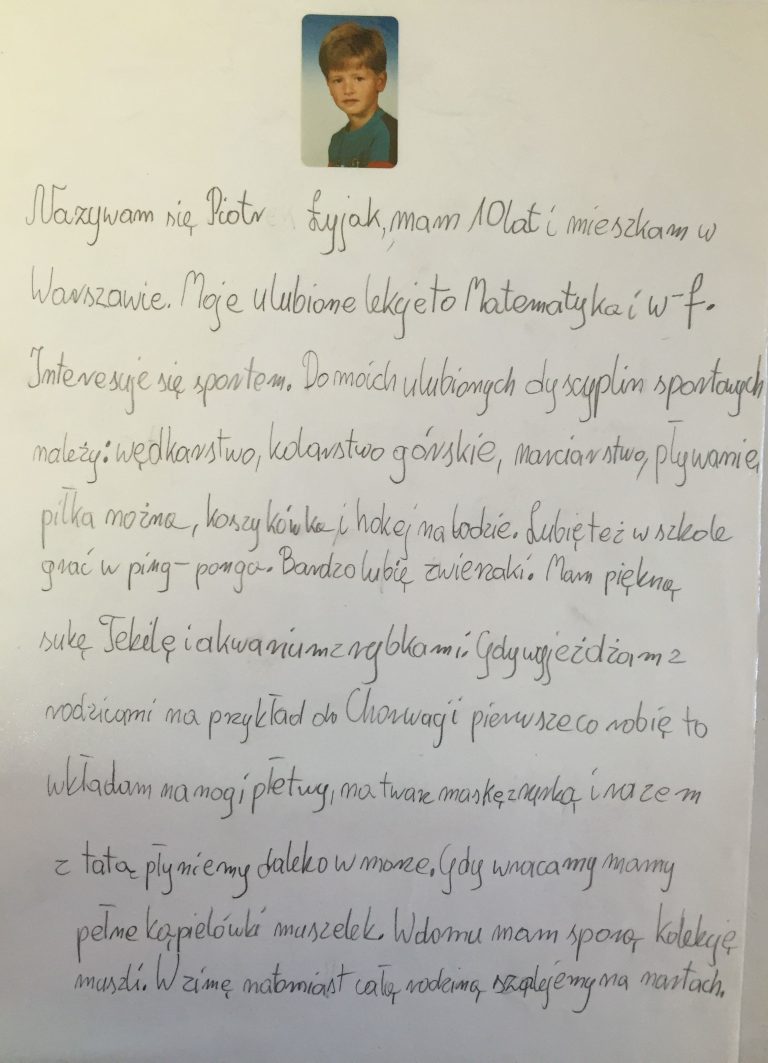 Nazywam się Piotr Łyjak, mam 10 lat i mieszkam w
Warszawie. Moje ulubione lekcje to Matematyka i w-f.
Interesuje się sportem. Do moich ulubionych dyscyplin sportowych
należy: wędkarstwo, kolarstwo górskie, narciarstwo, pływanie,
piłka nożna, koszykówka i hokej na lodzie. Lubię też w szkole
grać w ping-ponga. Bardzo lubię zwierzaki. Mam piękną
sukę Tekilę i akwarium z rybkami. Gdy wyjeżdżam z
rodzicami na przykład do Chorwagi pierwsze co robię to
wkładam na nogi płetwy, na twarz maskę z rurką i razem
z tatą płyniemy daleko w morze. Gdy wracamy mamy
pełne kąpielówki muszelek. W domu mam sporą kolekcję
muszli. W zimę natomiast całą rodziną szalejemy na nartach.